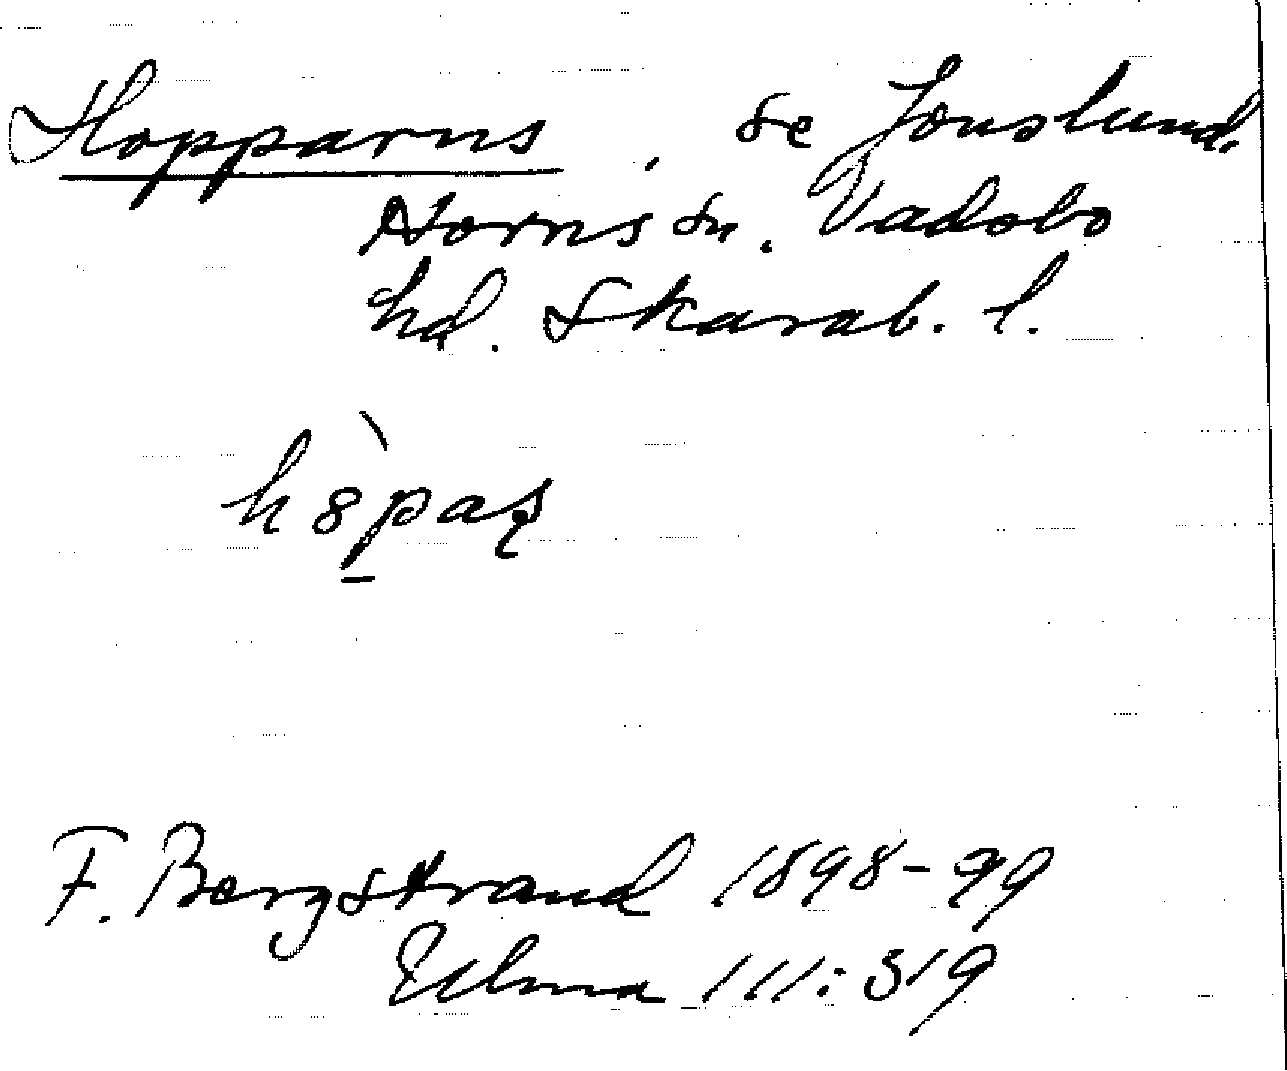 Hopparns, se Jonslund.
Horns sn. Vadsbo
hd. Skarab. l.
h8̀pas̨
F. Bergstrand 1898-99
Ulma 111:319